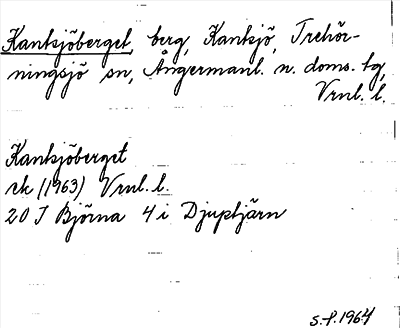 Kantsjöberget, berg, Kantsjö, Trehör-
ningsjö sn, Ångermanl. n. doms. tg,
Vrnl. l.
Kantsjöberget
ek (1963) Vrnl. l.
20 J Björna 4 i Djuptjärn
S.P. 1964